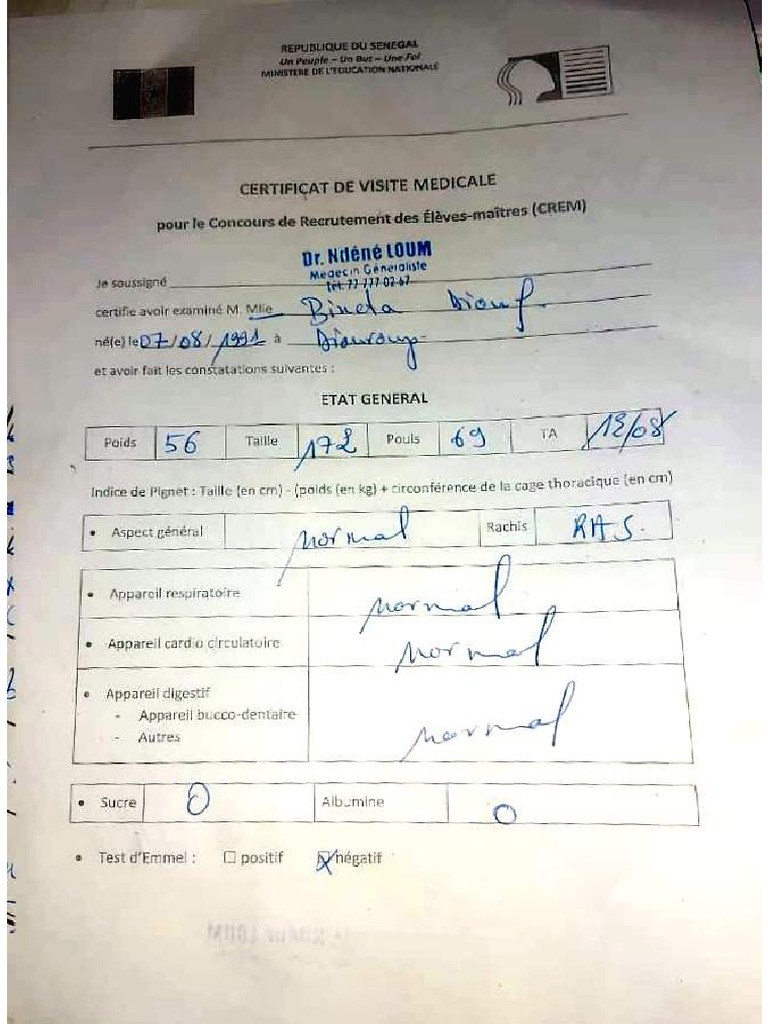 REPUBLIQUE DU SENEGAL
Un Peuple – Un But – Une Foi
MINISTERE DE L'EDUCATION NATIONALE
CERTIFICAT DE VISITE MEDICALE
pour le Concours de Recrutement des Élèves-maîtres (CREM)
Dr. Ndéné LOUM
Médecin Généraliste
tél: 77 777 02 67
Je soussigné
certifie avoir examiné M. Mlle Bineta Diouf
né(e) le 07/08/1991 à Diouroup
et avoir fait les constatations suivantes :
ETAT GENERAL
Poids 56 Taille 172 Pouls 69 TA 12/08
Indice de Pignet : Taille (en cm) - (poids (en kg) + circonférence de la cage thoracique (en cm)
• Aspect général normal Rachis RAS.
• Appareil respiratoire normal
• Appareil cardio circulatoire normal
• Appareil digestif
- Appareil bucco-dentaire normal
- Autres
• Sucre 0 Albumine 0
• Test d'Emmel : ☐ positif ☒ négatif